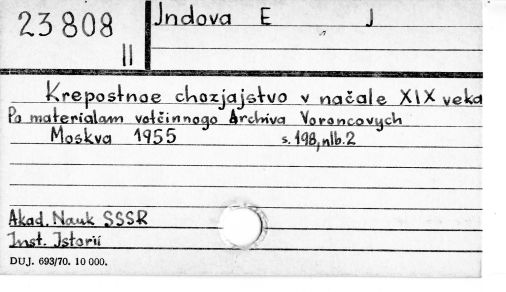 23808
II
Indova E J
Krepostnoe chozjajstvo v načale XIX veka
Po materialam votčinnogo Archiva Voroncovych
Moskva 1955 s. 198, nlb. 2
Akad. Nauk SSSR
Inst. Istorii
DUJ. 693/70. 10 000.